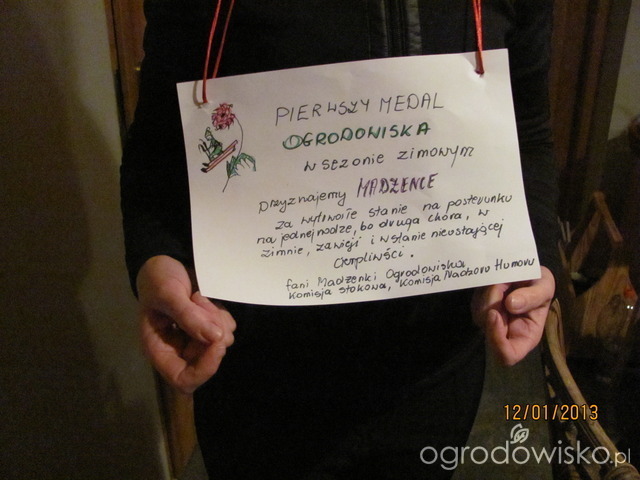 PIERWSZY MEDAL
OGRODOWISKA
w sezonie zimowym
przyznajemy MADZENCE
za wytrwałe stanie na posterunku
na jednej nodze, bo druga chora, w
zimnie, zawieji i w stanie nieustającej
cierpliwści.
fani Madzenki Ogrodowiska
Komisja stokowa, Komisja Nadzoru Humoru
12/01/2013
ogrodowisko.pl